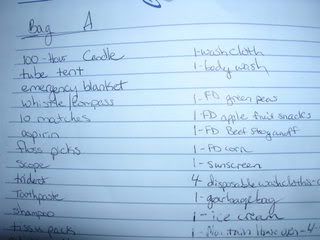 Bag A
100-Hour Candle
tube tent
emergency blanket
whistle/compass
10 matches
aspirin
floss picks
scope
trident
Toothpaste
shampoo
tissue pack
1-washcloth
1-body wash
1-FD green peas
1 FD apple fruit snacks
1-FD Beef stroganoff
1-FD corn
1-sunscreen
4-disposable washcloths
1-garbage bag
1-ice cream
1-Mountain House